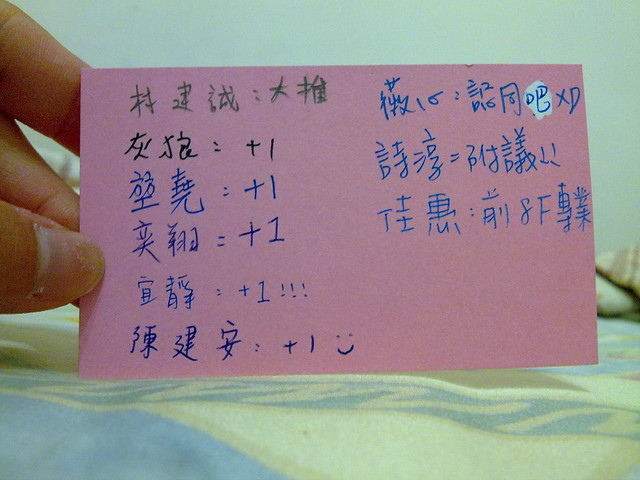 林建誠：大推
灰狼：+1
堃堯：+1
奕翔：+1
宜靜：+1!!!
陳建安：+1
薇心：認同吧XD
詩淳：附議!!
佳惠：前8F專業